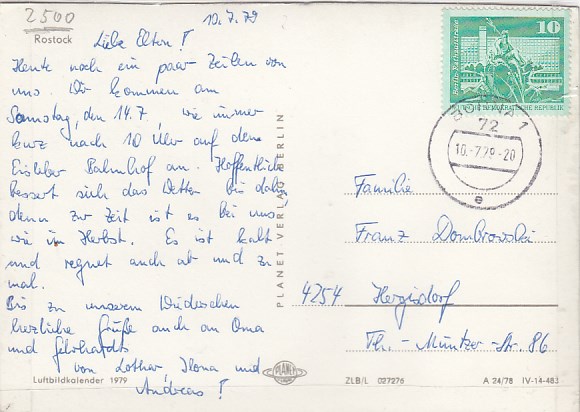 2500
Rostock
10.7.79
Liebe Eltern!
Heute noch ein paar Zeilen von
uns. Wir kommen am
Samstag, den 14.7., wie immer
kurz nach 10 Uhr auf dem
Eisleber Bahnhof an. Hoffentlich
bessert sich das Wetter bis dahin,
denn zur Zeit ist es bei uns
wie im Herbst. Es ist kalt
und regnet auch ab und zu
mal.
Bis zu unserem Wiedersehen
herzliche Grüße auch an Oma
und Gerhardts
von Lothar Ilona und
Andreas!
Luftbildkalender 1979
PLANET VERLAG BERLIN
PLANET
10
Berlin, Rathausstraße
DEUTSCHE DEMOKRATISCHE REPUBLIK
BORNA 1
72
10.-7.79-20
e
Familie
Franz Dombrowski
4254 Hergisdorf
Th.-Müntzer-Str. 86
ZLB/L 027276 A 24/78 IV-14-483